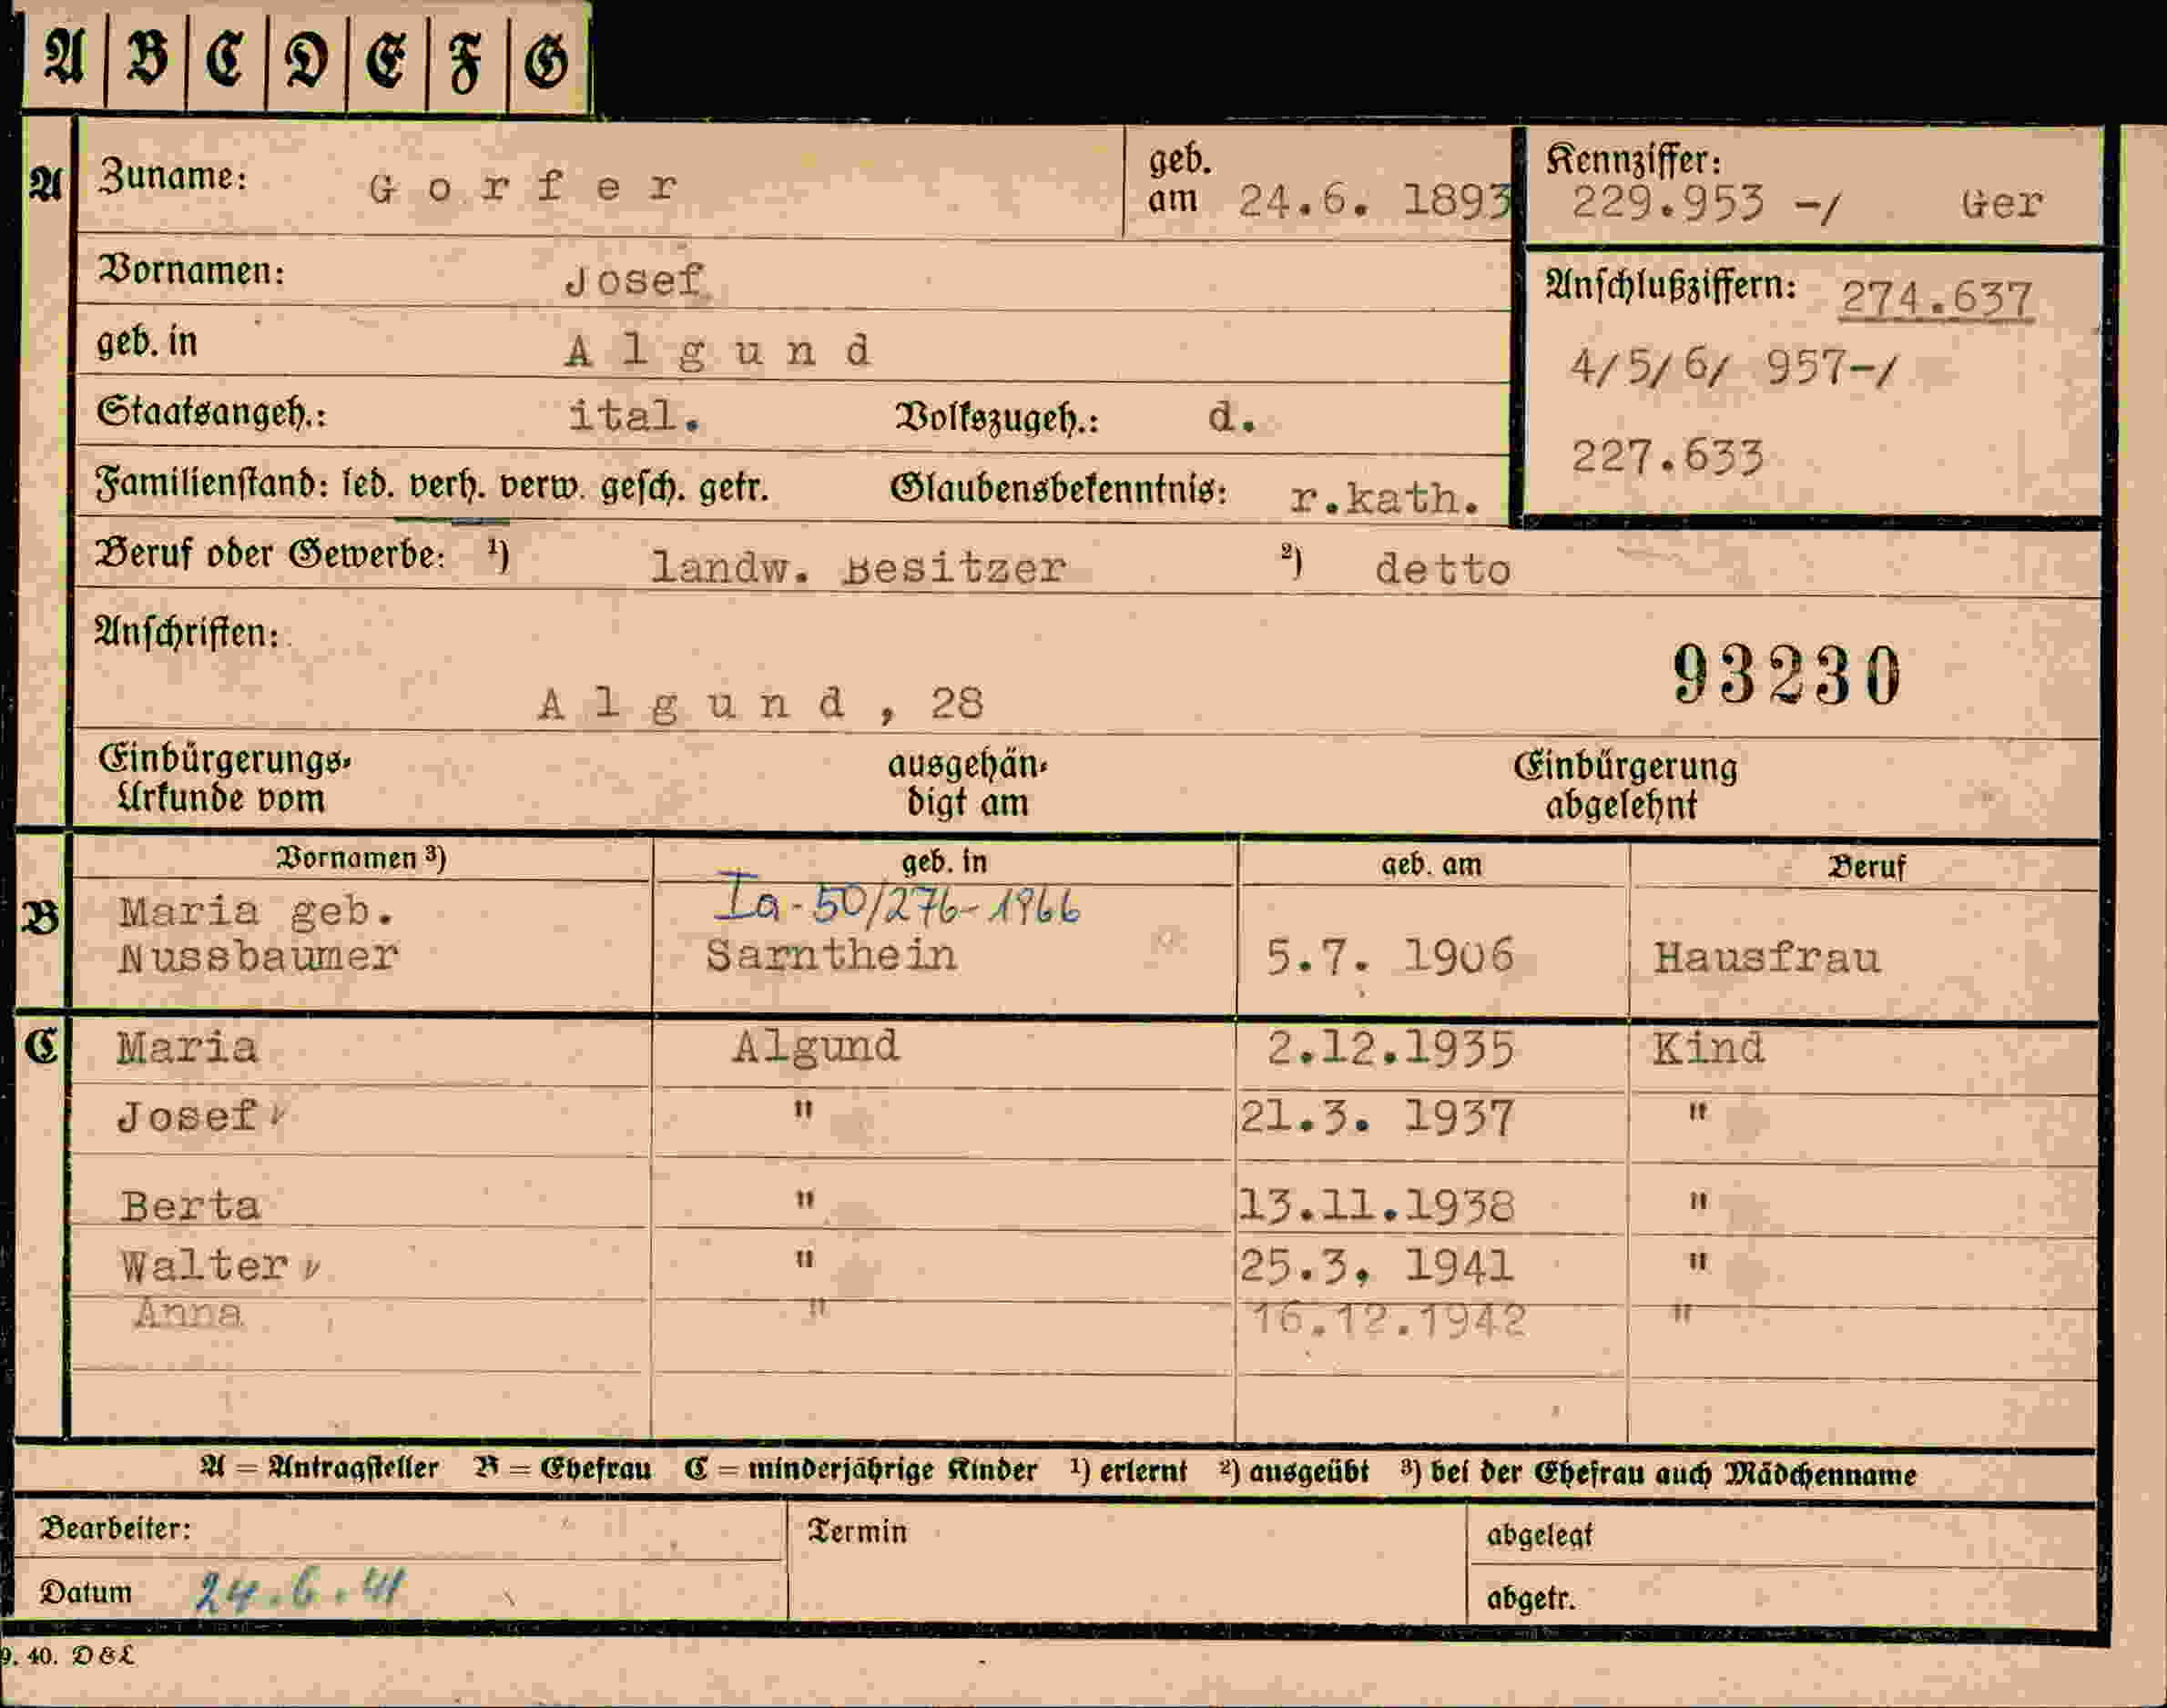 A B C D E F G
A Zuname: Gorfer geb. am 24.6. 1893 Kennziffer: 229.953 -/ Ger
Vornamen: Josef
Anschlußziffern: 274.637
geb. in Algund
4/5/6/ 957-/
Staatsangeh.: ital. Volkszugeh.: d.
227.633
Familienstand: led. verh. verw. gesch. getr. Glaubensbekenntnis: r.kath.
Beruf oder Gewerbe: ¹) landw. Besitzer ²) detto
Anschriften:
Algund, 28
93230
Einbürgerungs-Urkunde vom ausgehän-digt am Einbürgerung abgelehnt
Vornamen ³) geb. in geb. am Beruf
Ia-50/276-1966
B Maria geb.
Nussbaumer Sarnthein 5.7. 1906 Hausfrau
C Maria Algund 2.12.1935 Kind
Josef " 21.3. 1937 "
Berta " 13.11.1938 "
Walter " 25.3. 1941 "
Anna " 16.12.1942 "
A = Antragsteller B = Ehefrau C = minderjährige Kinder ¹) erlernt ²) ausgeübt ³) bei der Ehefrau auch Mädchenname
Bearbeiter: Termin abgelegt
Datum 24.6.41 abgetr.
9. 40. D&L